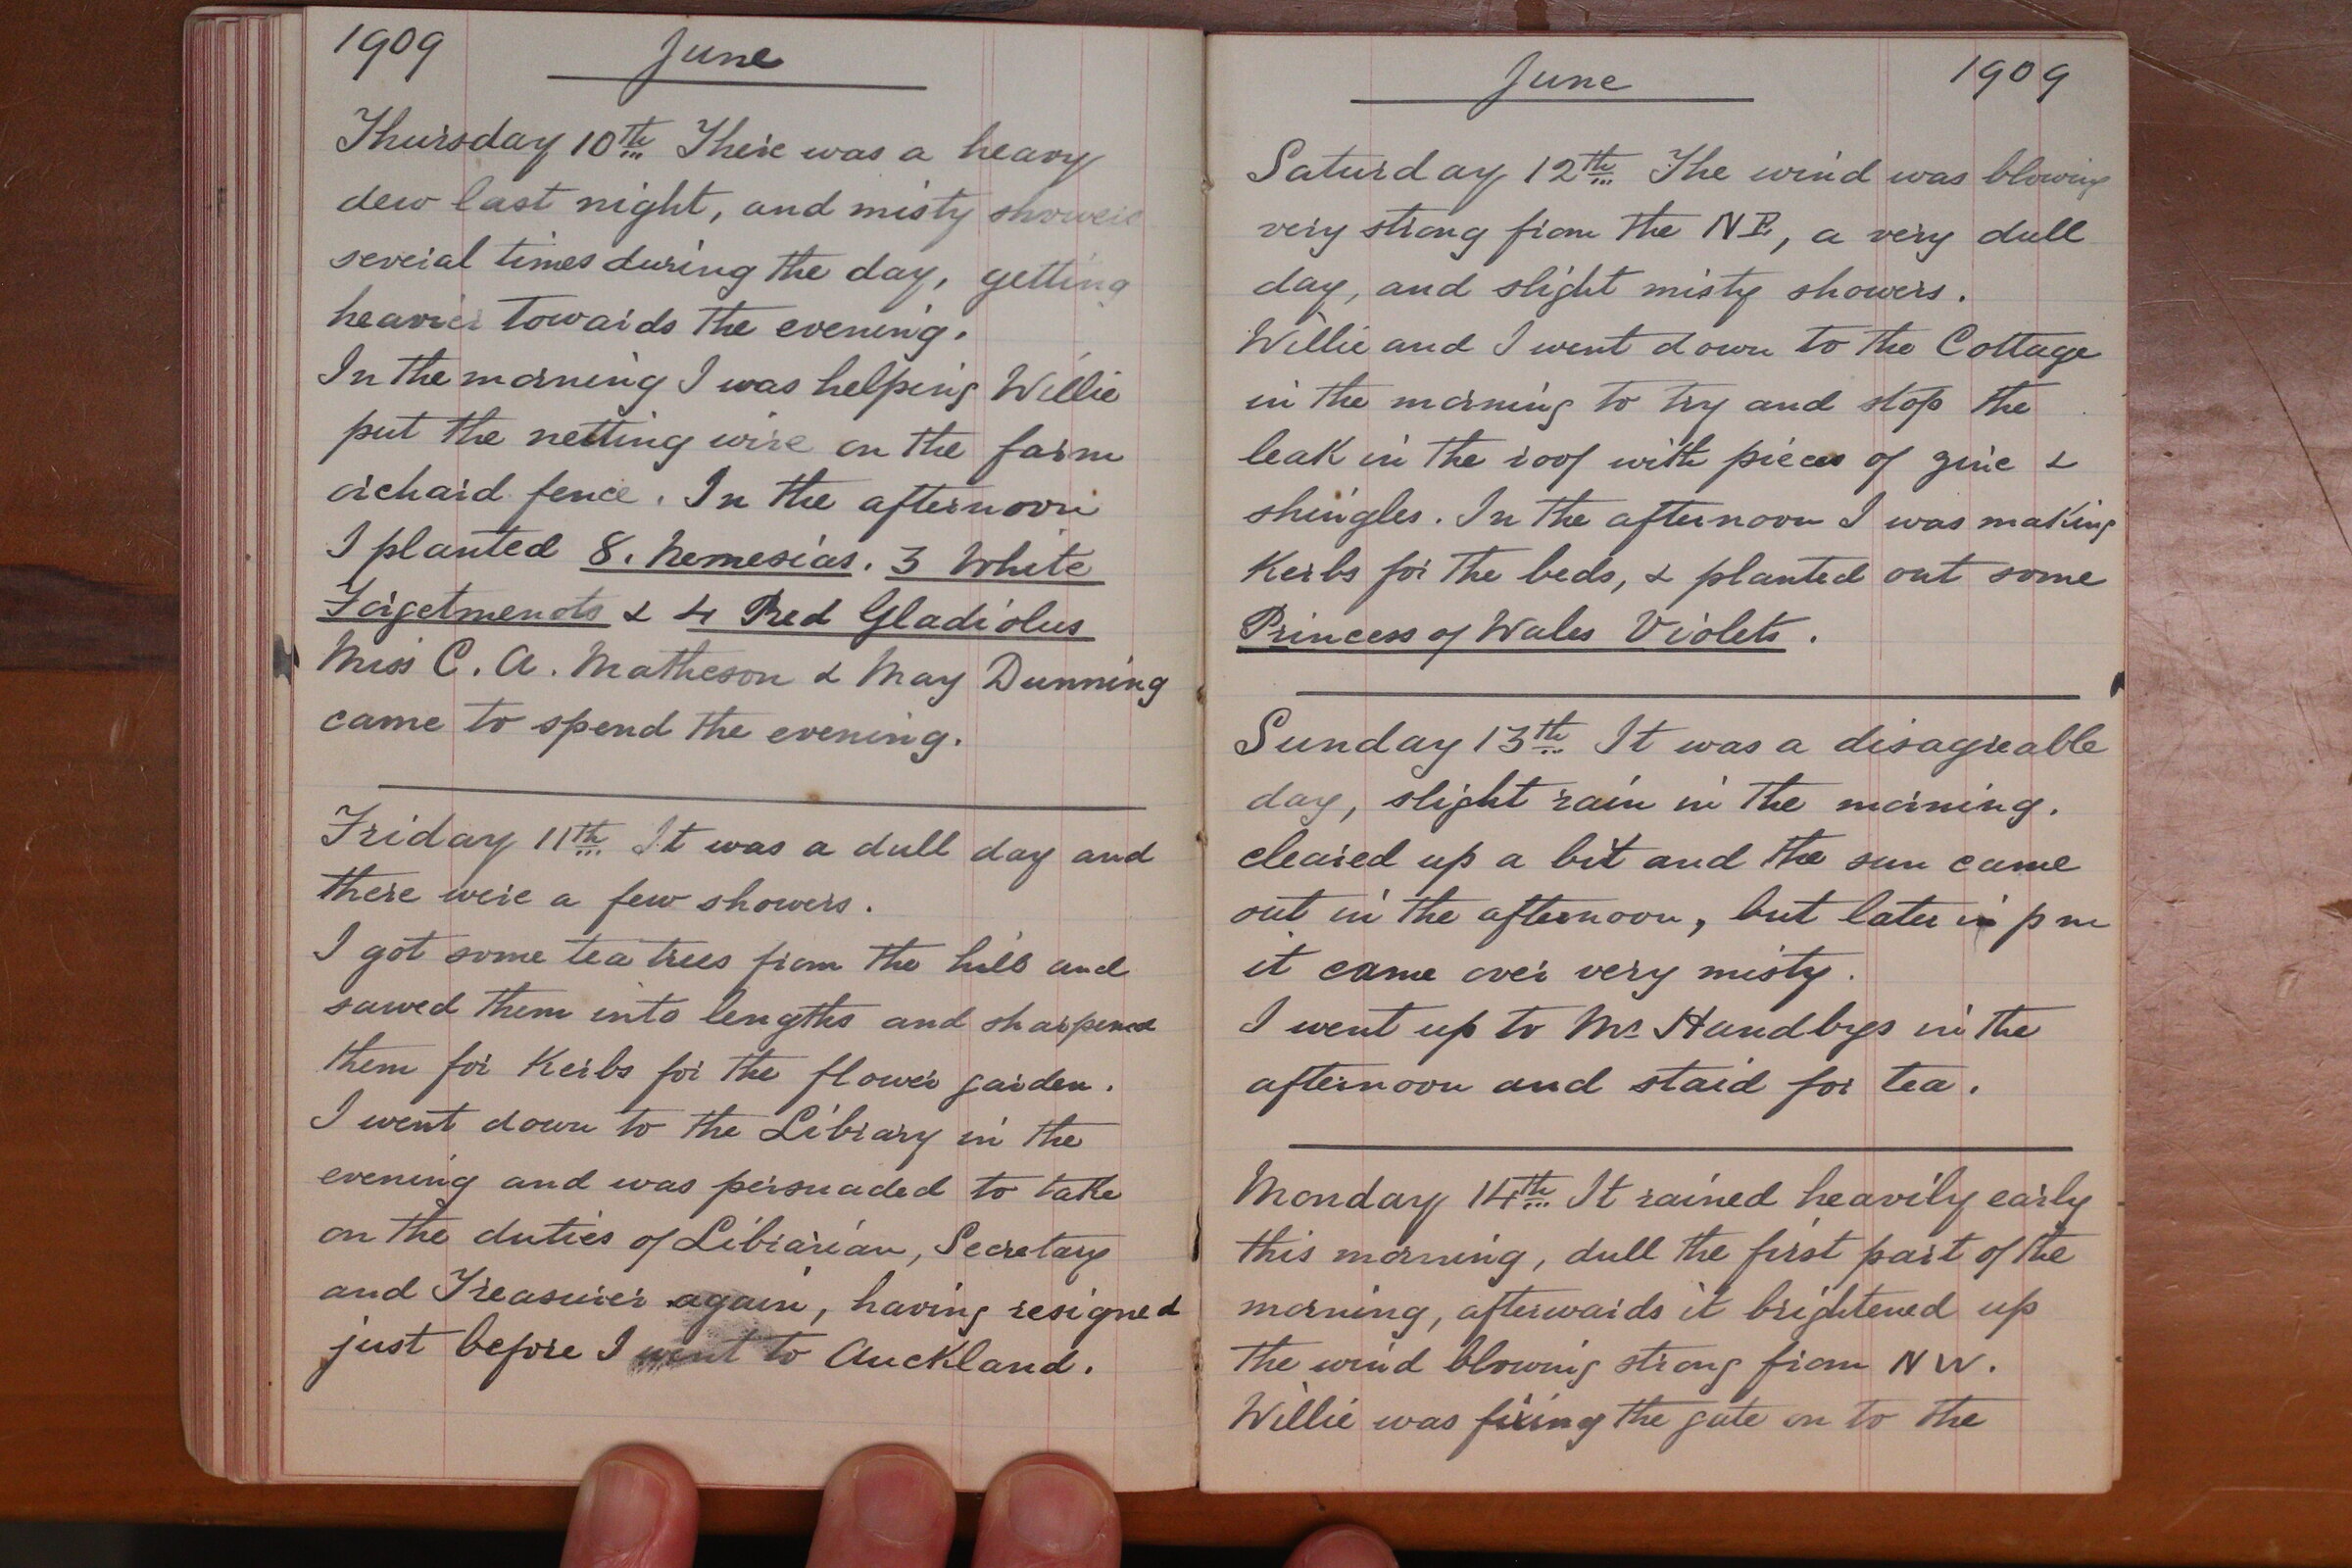 1909 June
Thursday 10th There was a heavy
dew last night, and misty showers
several times during the day, getting
heavier towards the evening.
In the morning I was helping Willie
put the netting wire on the farm
orchard fence. In the afternoon
I planted 8. Nemesias. 3 White
Forgetmenots & 4 Red Gladiolus
Miss C. A. Matheson & May Dunning
came to spend the evening.
Friday 11th It was a dull day and
there were a few showers.
I got some tea trees from the hill and
sawed them into lengths and sharpened
them for Kerbs for the flower garden.
I went down to the Library in the
evening and was persuaded to take
on the duties of Librarian, Secretary
and Treasurer again, having resigned
just before I went to Auckland.
June 1909
Saturday 12th The wind was blowing
very strong from the NE, a very dull
day, and slight misty showers.
Willie and I went down to the Cottage
in the morning to try and stop the
leak in the roof with pieces of zinc &
shingles. In the afternoon I was making
Kerbs for the beds, & planted out some
Princess of Wales Violets.
Sunday 13th It was a disagreable
day, slight rain in the morning.
cleared up a bit and the sun came
out in the afternoon, but later in pm
it came over very misty.
I went up to Mr Handbys in the
afternoon and staid for tea.
Monday 14th It rained heavily early
this morning, dull the first part of the
morning, afterwards it brightened up
the wind blowing strong from NW.
Willie was fixing the gate on to the